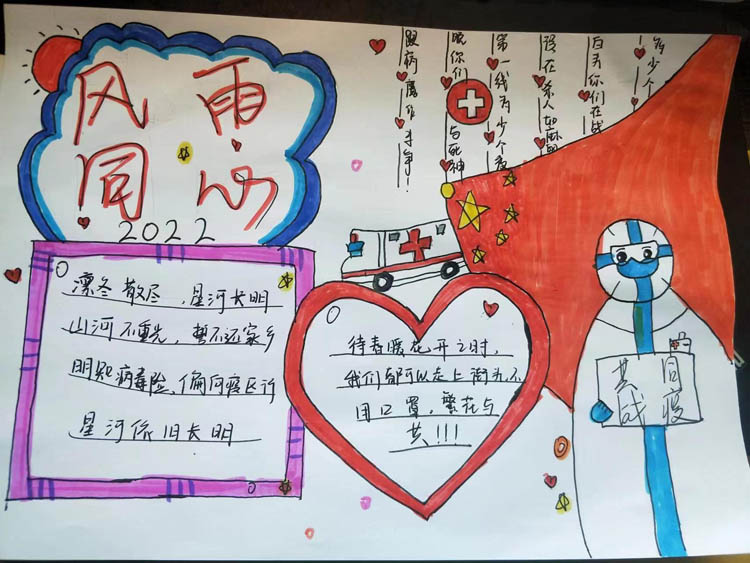 风 雨
同 心
2022
多少个
白天你们在战
在杀人如麻的
第一线多少个夜
晚你们与死神
跟病魔作斗争!
凛冬散尽,星河长明
山河不重先,誓不还家乡
明知病毒险,偏向疫区行
星河依旧长明
待春暖花开之时,
我们都可以走上街头,不
用口罩,繁花与
共!!!
共同
战疫